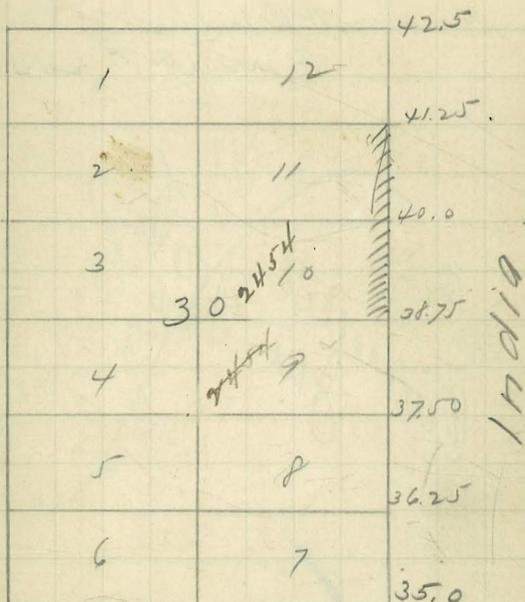 42.5
1 12
41.25.
2 11
40.0
3 10
2454
30
38.75
4 9
2454
37.50
5 8
36.25
6 7
35.0
India